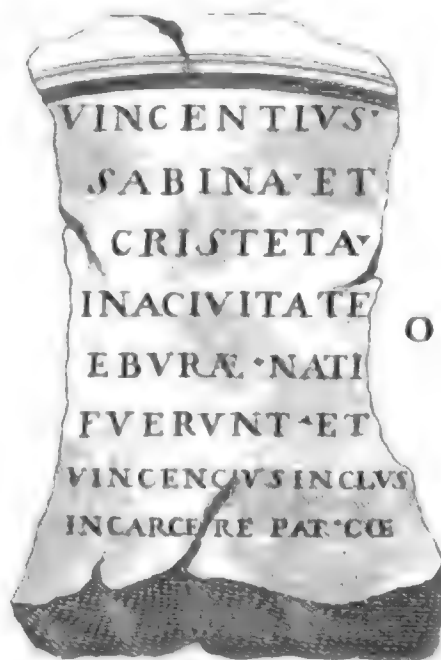 VINCENTIVS·
SABINA·ET
CRISTETA·
INACIVITATE
EBVRÆ·NATI
FVERVNT·ET
VINCENCIVSINCLVS
INCARCERE PAT·CŒ
O